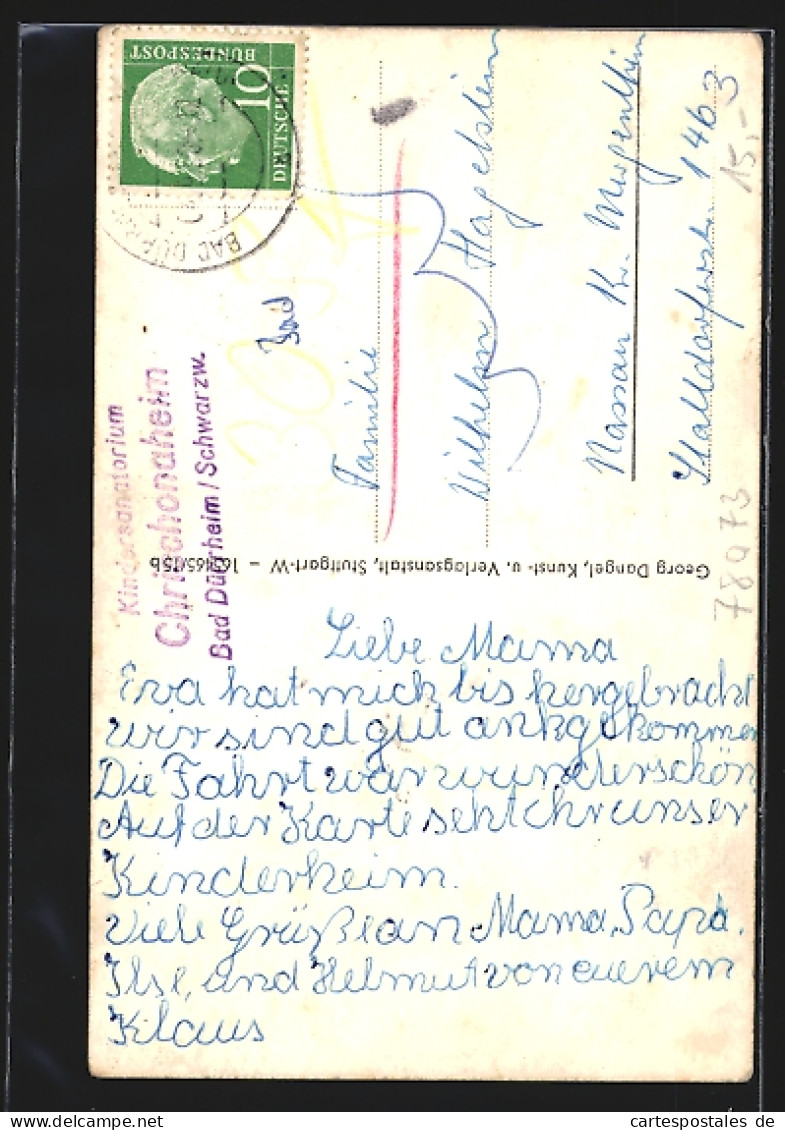 DEUTSCHE
BUNDESPOST
10
BAD DÜRRH
Kindersanatorium
Chrischonaheim
Bad Dürrheim / Schwarzw.
Bad
Familie
Wilhelm Hagelstein
Nassau Kr. Mergentheim
1463
15,-3
78073
Georg Dangel, Kunst- u. Verlagsanstalt, Stuttgart-W –
Liebe Mama
Eva hat mich bis hergebracht
wir sind gut ankgekommen
Die Fahrt war wunderschön
Auf der Karte seht Ihr unser
Kinderheim.
Viele Grüße an Mama, Papa,
Ilse, und Helmut von euerem
Klaus
cartespostales.de